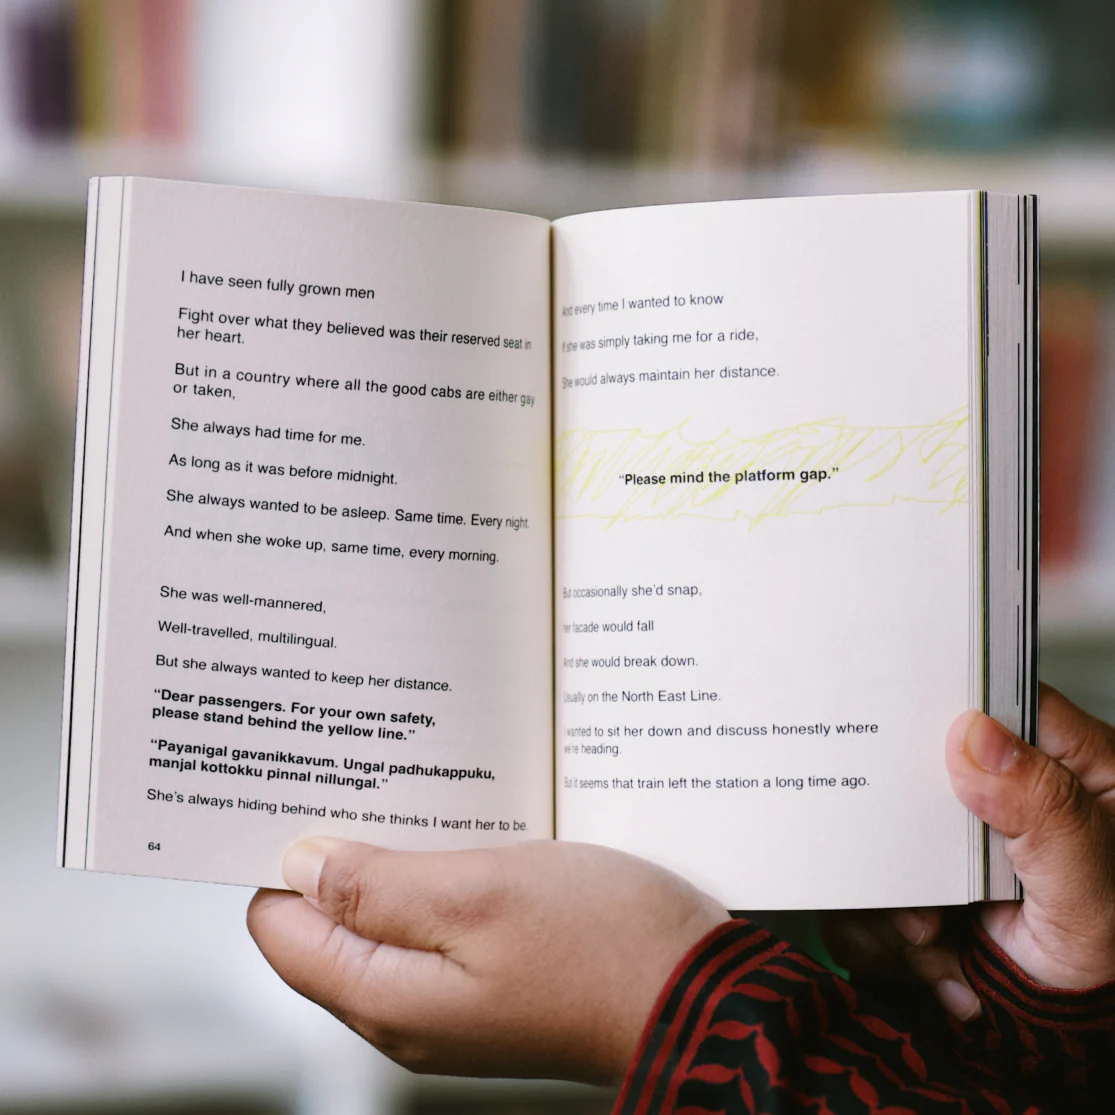 I have seen fully grown men
Fight over what they believed was their reserved seat in
her heart.
But in a country where all the good cabs are either gay
or taken,
She always had time for me.
As long as it was before midnight.
She always wanted to be asleep. Same time. Every night.
And when she woke up, same time, every morning.
She was well-mannered,
Well-travelled, multilingual.
But she always wanted to keep her distance.
“Dear passengers. For your own safety,
please stand behind the yellow line.”
“Payanigal gavanikkavum. Ungal padhukappuku,
manjal kottokku pinnal nillungal.”
She’s always hiding behind who she thinks I want her to be.
64
And every time I wanted to know
If she was simply taking me for a ride,
She would always maintain her distance.
“Please mind the platform gap.”
But occasionally she’d snap,
her facade would fall
And she would break down.
Usually on the North East Line.
I wanted to sit her down and discuss honestly where
we’re heading.
But it seems that train left the station a long time ago.